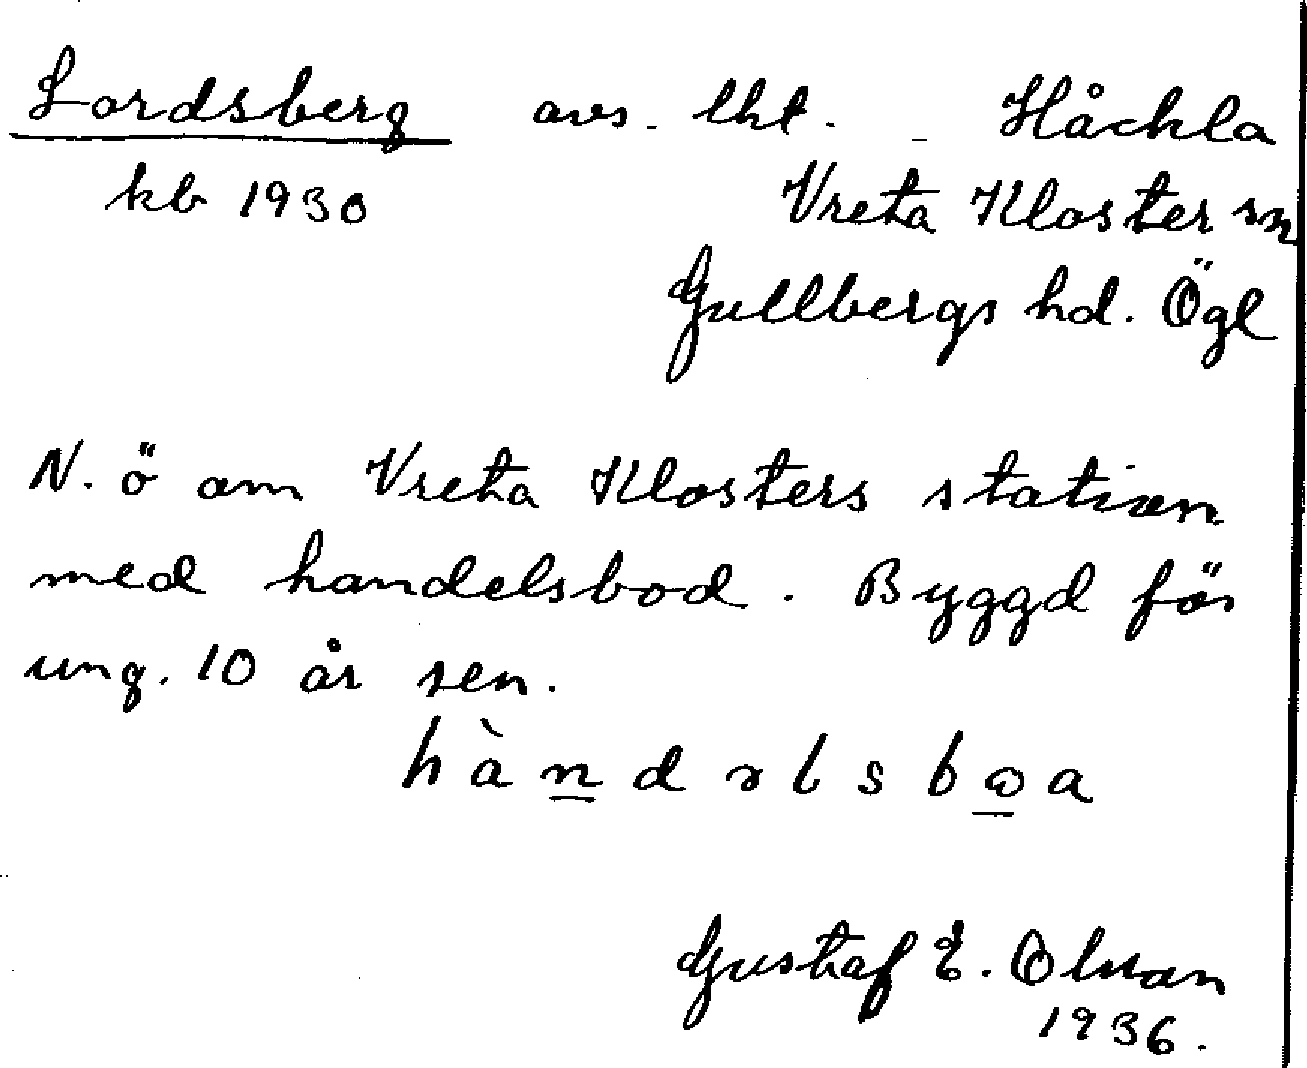 Lordsberg avs. lht. - Håckla
kb 1930 Vreta Kloster sn
Gullbergs hd. Ögl
N. ö om Vreta Klosters station
med handelsbod. Byggd för
ung. 10 år sen.
hàndəlsbωa
Gustaf E. Olsson
1936.